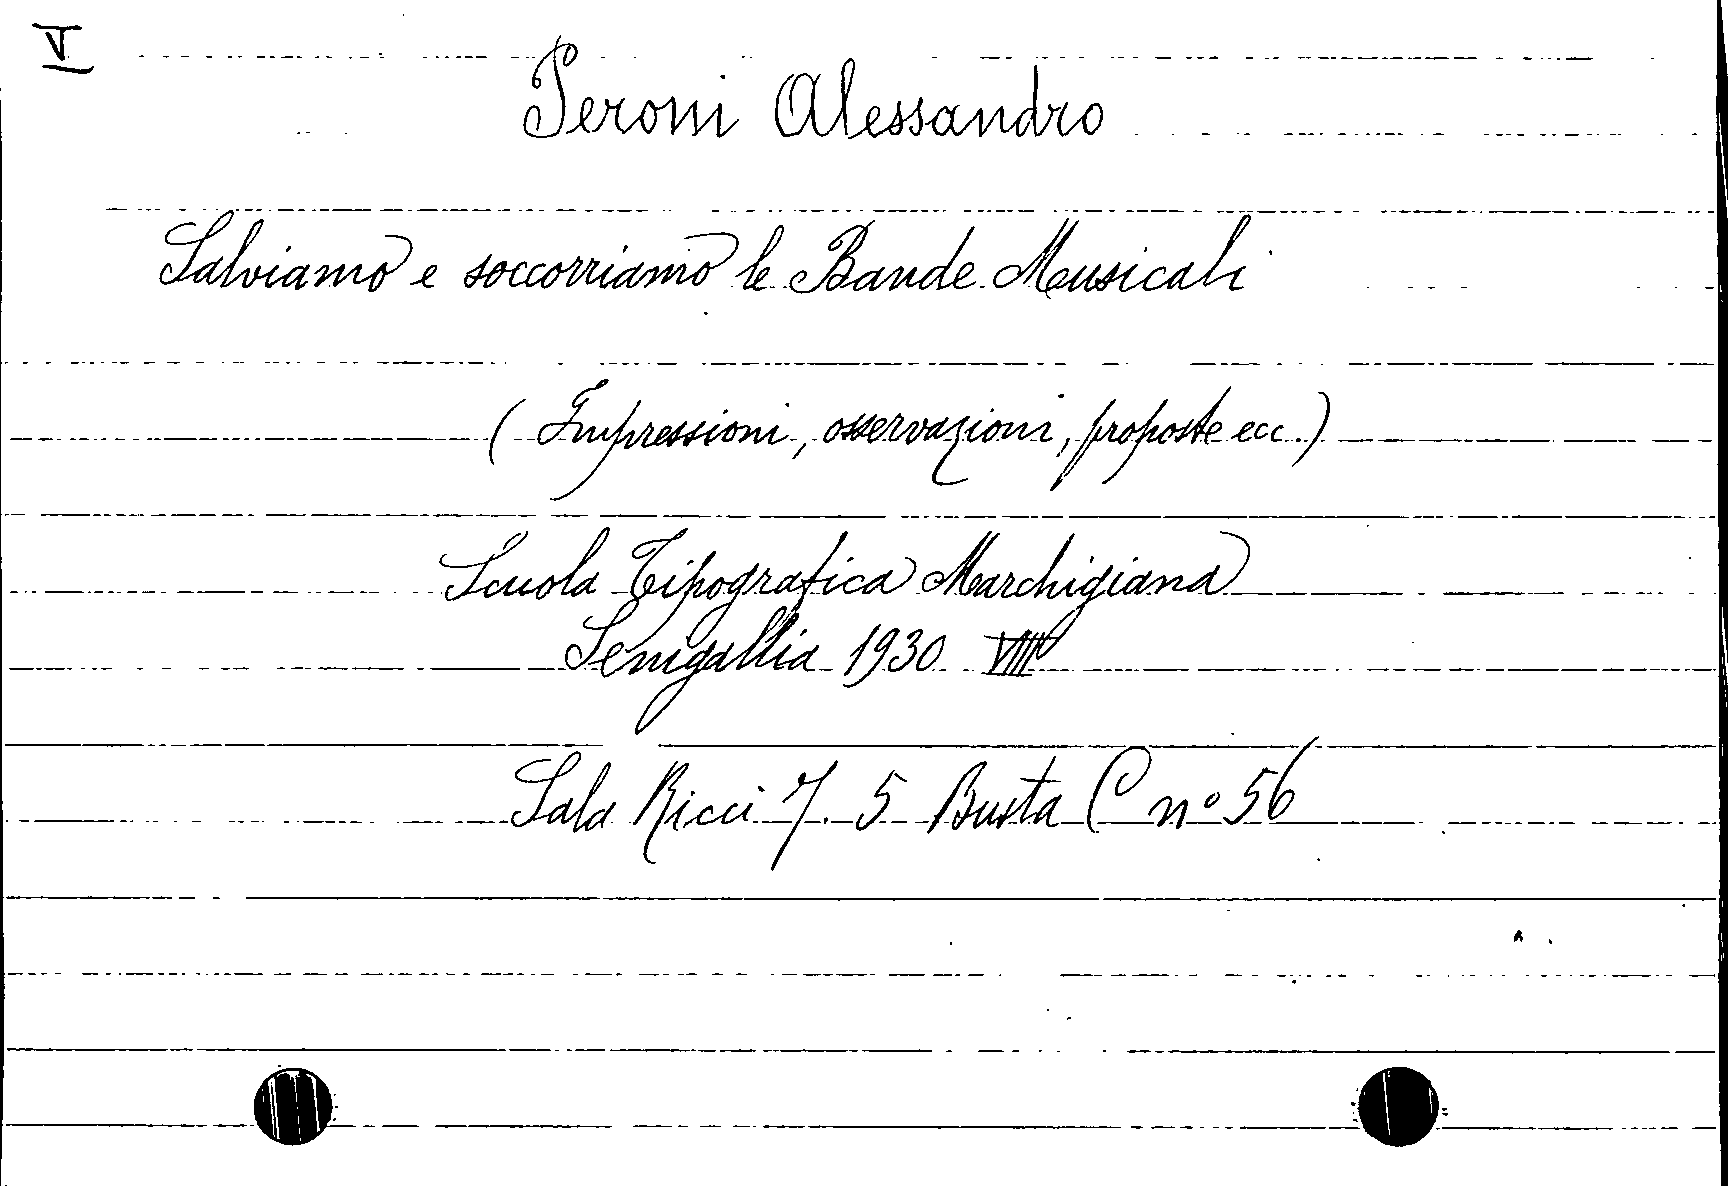 V
Peroni Alessandro
Salviamo e soccorriamo le Bande Musicali
(Impressioni, osservazioni, proposte ecc.)
Scuola Tipografica Marchigiana
Senigallia 1930 VIII
Sala Ricci 7. 5 Busta C n° 56